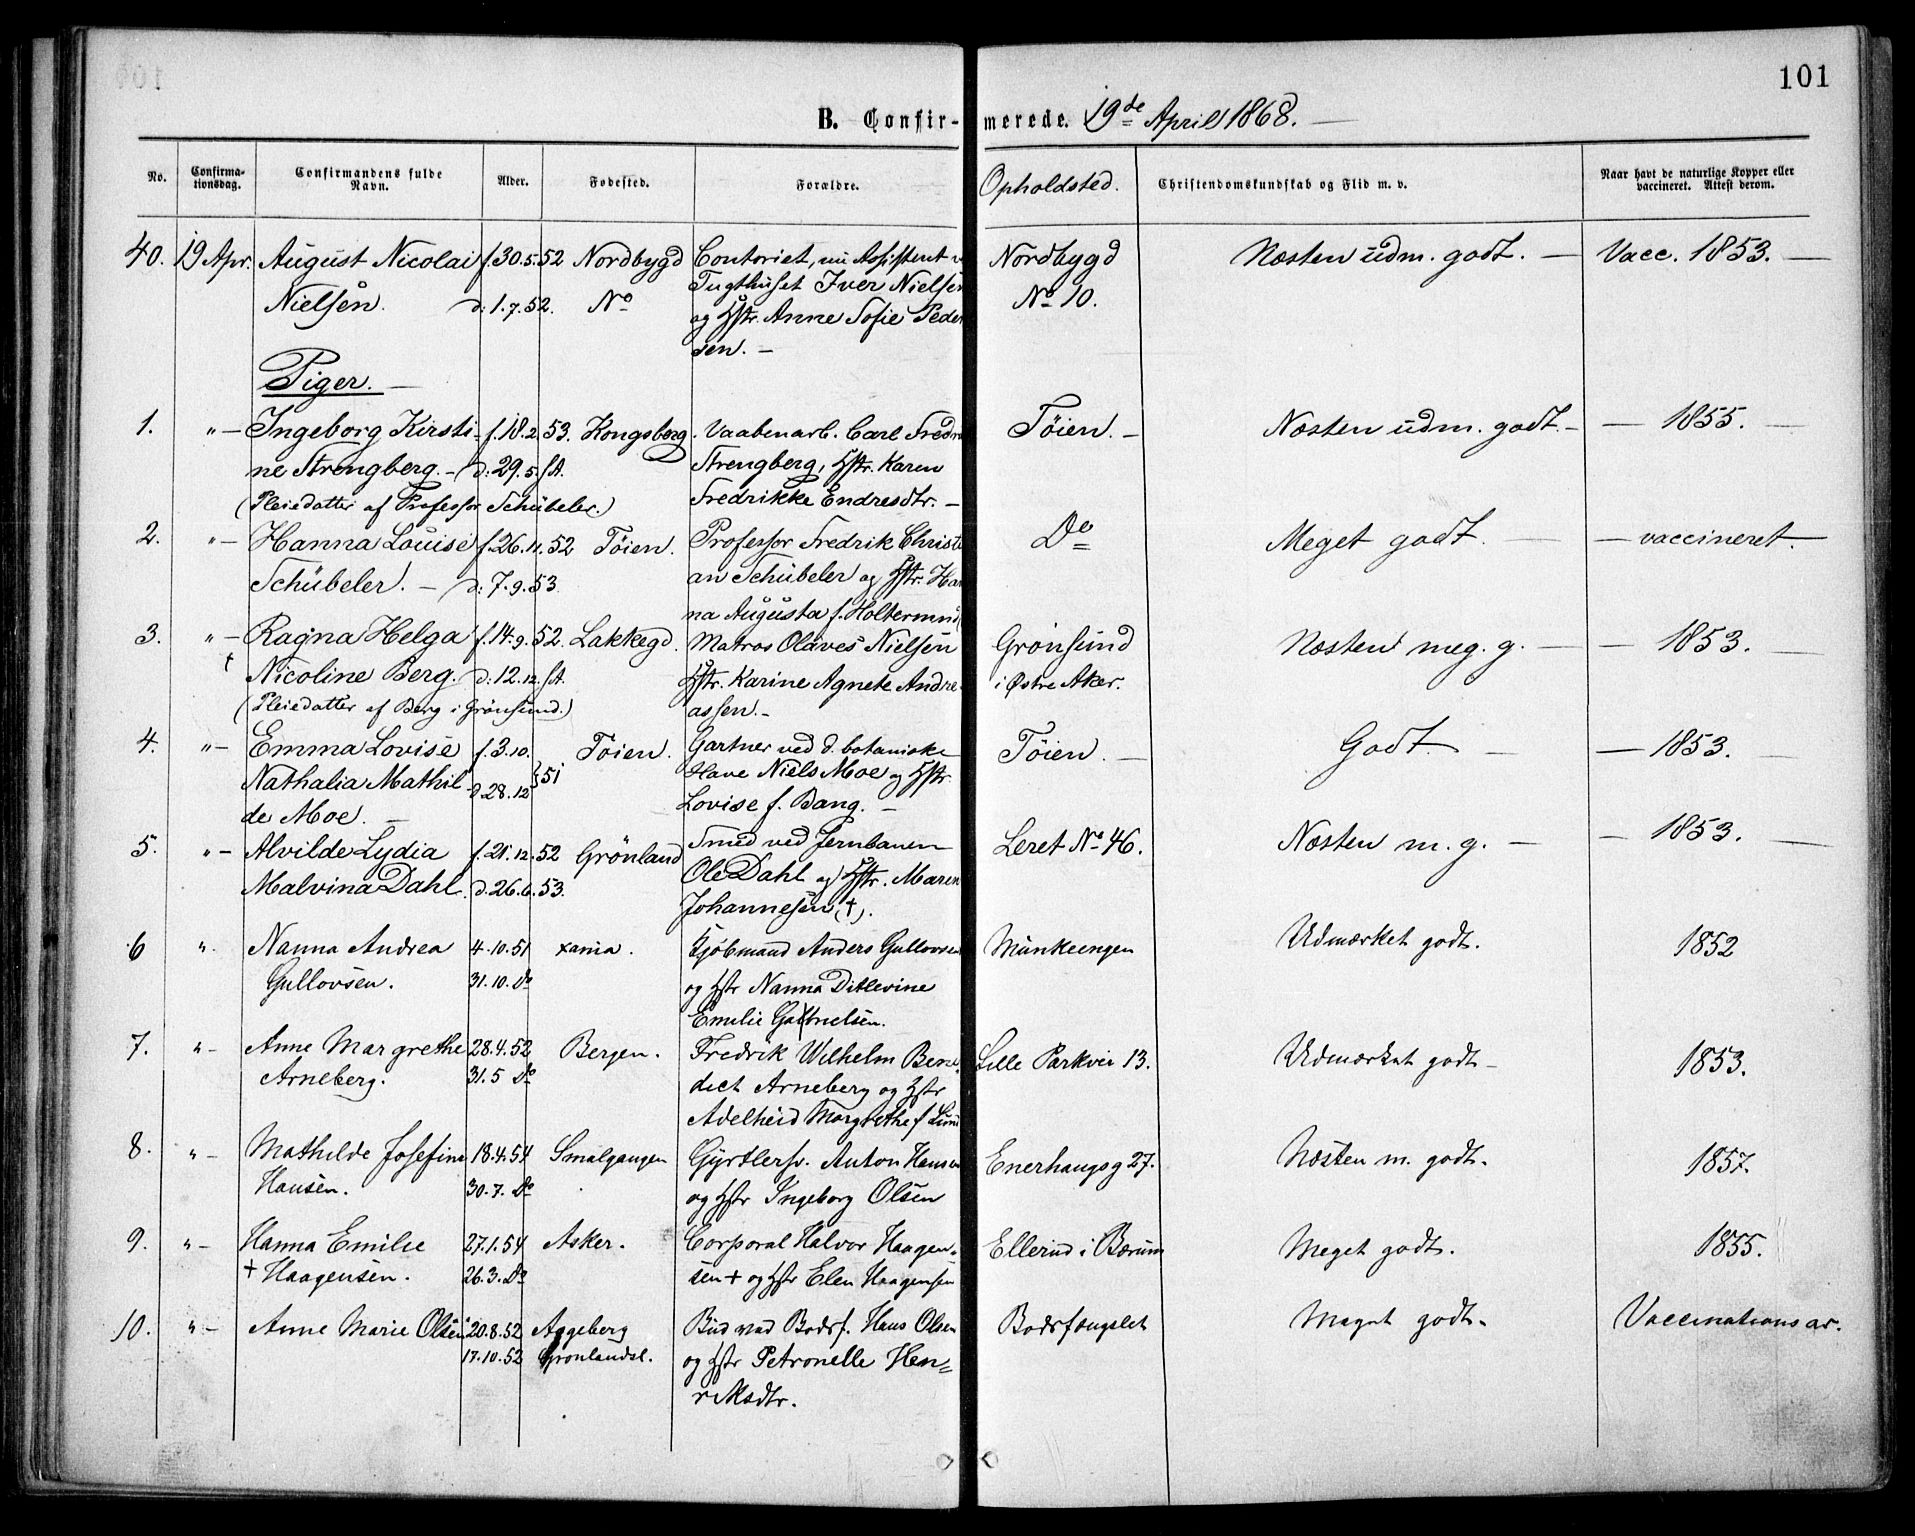 101
B. Confirmerede. 19de April 1868. —
No. Confirmationsdag. Confirmandens fulde Navn. Alder. Fødested. Forældre. Opholdsted. Christendomskundskab og Flid m. v. Naar havt de naturlige Kopper eller vaccineret. Attest derom.
40. 19 Apr. August Nicolai f. 30.5.52 Nordbygd Contoriet, nu Assistent Nordbygd Næsten udm. godt. — Vacc. 1853. —
Nielsen. d: 1.7.52. No Tugthuset Iver Nielsen No 10.
og Hstr. Anne Sofie Peder
sen. —
Piger. —
1. "— Ingeborg Kirsti- f. 18.2.53. Kongsberg. Vaabenarb. Carl Fredr Töien. — Næsten udm. godt. — — 1855. —
ne Strengberg. — d: 29.5. sA. Strengberg, Hstr. Karen
(Pleiedatter af Professor Schübeler.) Fredrikke Endresdtr. —
2. "— Hanna Louise f. 26.11.52 Töien. Professor Fredrik Christi Do Meget godt. — — vaccineret. —
Schübeler. — d: 7.9.53. an Schübeler og Hstr. Han
na Augusta f. Holtermand
3. "— Ragna Helga f. 14.9.52. Lakkegd. Matros Olaves Nielsen Grønsund Næsten meg. g. — — 1853. —
† Nicoline Berg. d: 12.12. sA. Hstr. Karine Agnete Andre- i Østre Aker.
(Pleiedatter af Berg i Grønsund.) assen. —
4. "— Emma Lovise f. 3.10. Töien. Gartner ved d. botaniske Töien. — Godt. — — 1853. —
Nathalia Mathil d. 28.12 } 51 Have Niels Moe og Hstr.
de Moe. — Lovise f. Bang. —
5. "— Alvilde Lydia f. 21.12.52 Grönland Smed ved Jernbanen Leret No 46. Næsten m. g. — — 1853. —
Malvina Dahl. d. 26.6.53. Ole Dahl og Hstr. Maren
Johannesen (†).
6 ". Nanna Andrea 4.10.51 xania. Kjøbmand Anders Gullovsen Munkeengen Udmærket godt. 1852
Gullovsen. 31.10. Do og Hstr Nanna Ditlevine
Emilie Gabrielsen.
7. "- Anne Margrethe 28.4.52 Bergen. Fredrik Wilhelm Bene- Lille Parkvei 13. Udmærket godt - 1853.
Arneberg. 31.5 Do dict Arneberg og Hstr
Adelheid Margrethe f Lund
8. "- Mathilde Josefine 18.4.54 Smalgangen Gjrtlersv. Anton Hansen Enerhaugsg 27. Næsten m. godt. 1857.
Hansen. 30.7. Do og Hstr Ingeborg Olsen
9. "- Hanna Emilie 27.1.54 Asker. Corporal Halvor Haagen- Ellerud i Bærum Meget godt. 1855.
† Haagensen. 26.3. Do sen † og Hstr Elen Haagensen
10. "- Anne Marie Olsen 20.8.52 Aggeberg Bud ved Bodsf. Hans Olsen Bodsfængslet Meget godt. Vaccinations
17.10.52 Grønlandsl. og Hstr Petronelle Hen=
riksdtr.